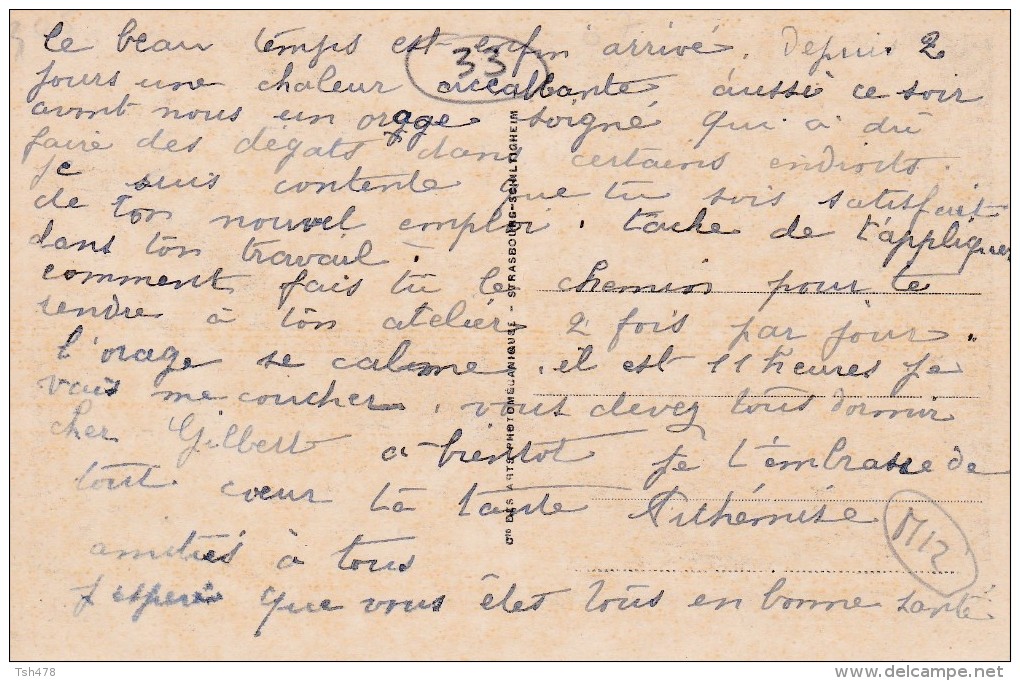 le beau temps est enfin arrivé. depuis 2
33
jours une chaleur accablante aussi ce soir
avont nous un orage soigné qui a dû
faire des dégats dans certains endroits.
je suis contente que tu sois satisfait
de ton nouvel emploi. tache de t'appliquer
dans ton travail.
comment fais tu le chemin pour te
rendre à ton atelier 2 fois par jour.
l'orage se calme. il est 11 heures je
vais me coucher. vous devez tous dormir
cher Gilbert a bientot je t'embrasse de
tout cœur ta tante Arthémise
amitiés à tous
j'espère que vous êtes tous en bonne santé
M12
Cie DES ARTS PHOTOMÉCANIQUES - STRASBOURG-SCHILTIGHEIM
Tsh478
www.delcampe.net